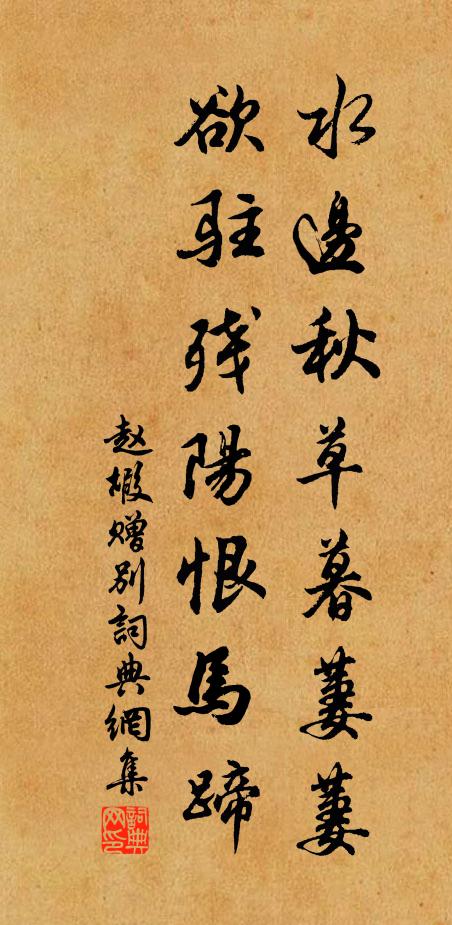 水邊秋草暮萋萋
欲駐残陽恨馬蹄
赵嘏赠别詞典網集
詞典网印